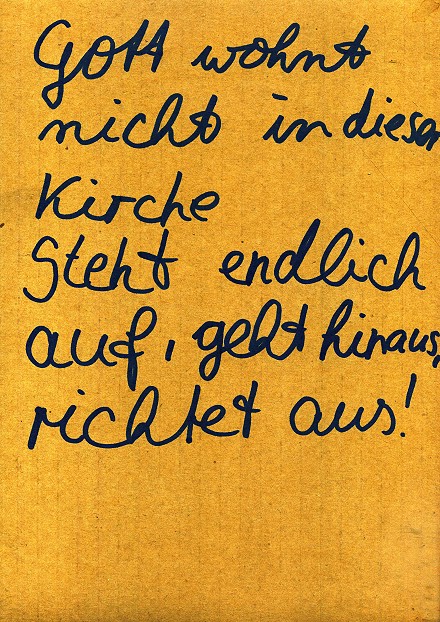 Gott wohnt
nicht in dieser
Kirche
Steht endlich
auf, geht hinaus,
richtet aus!